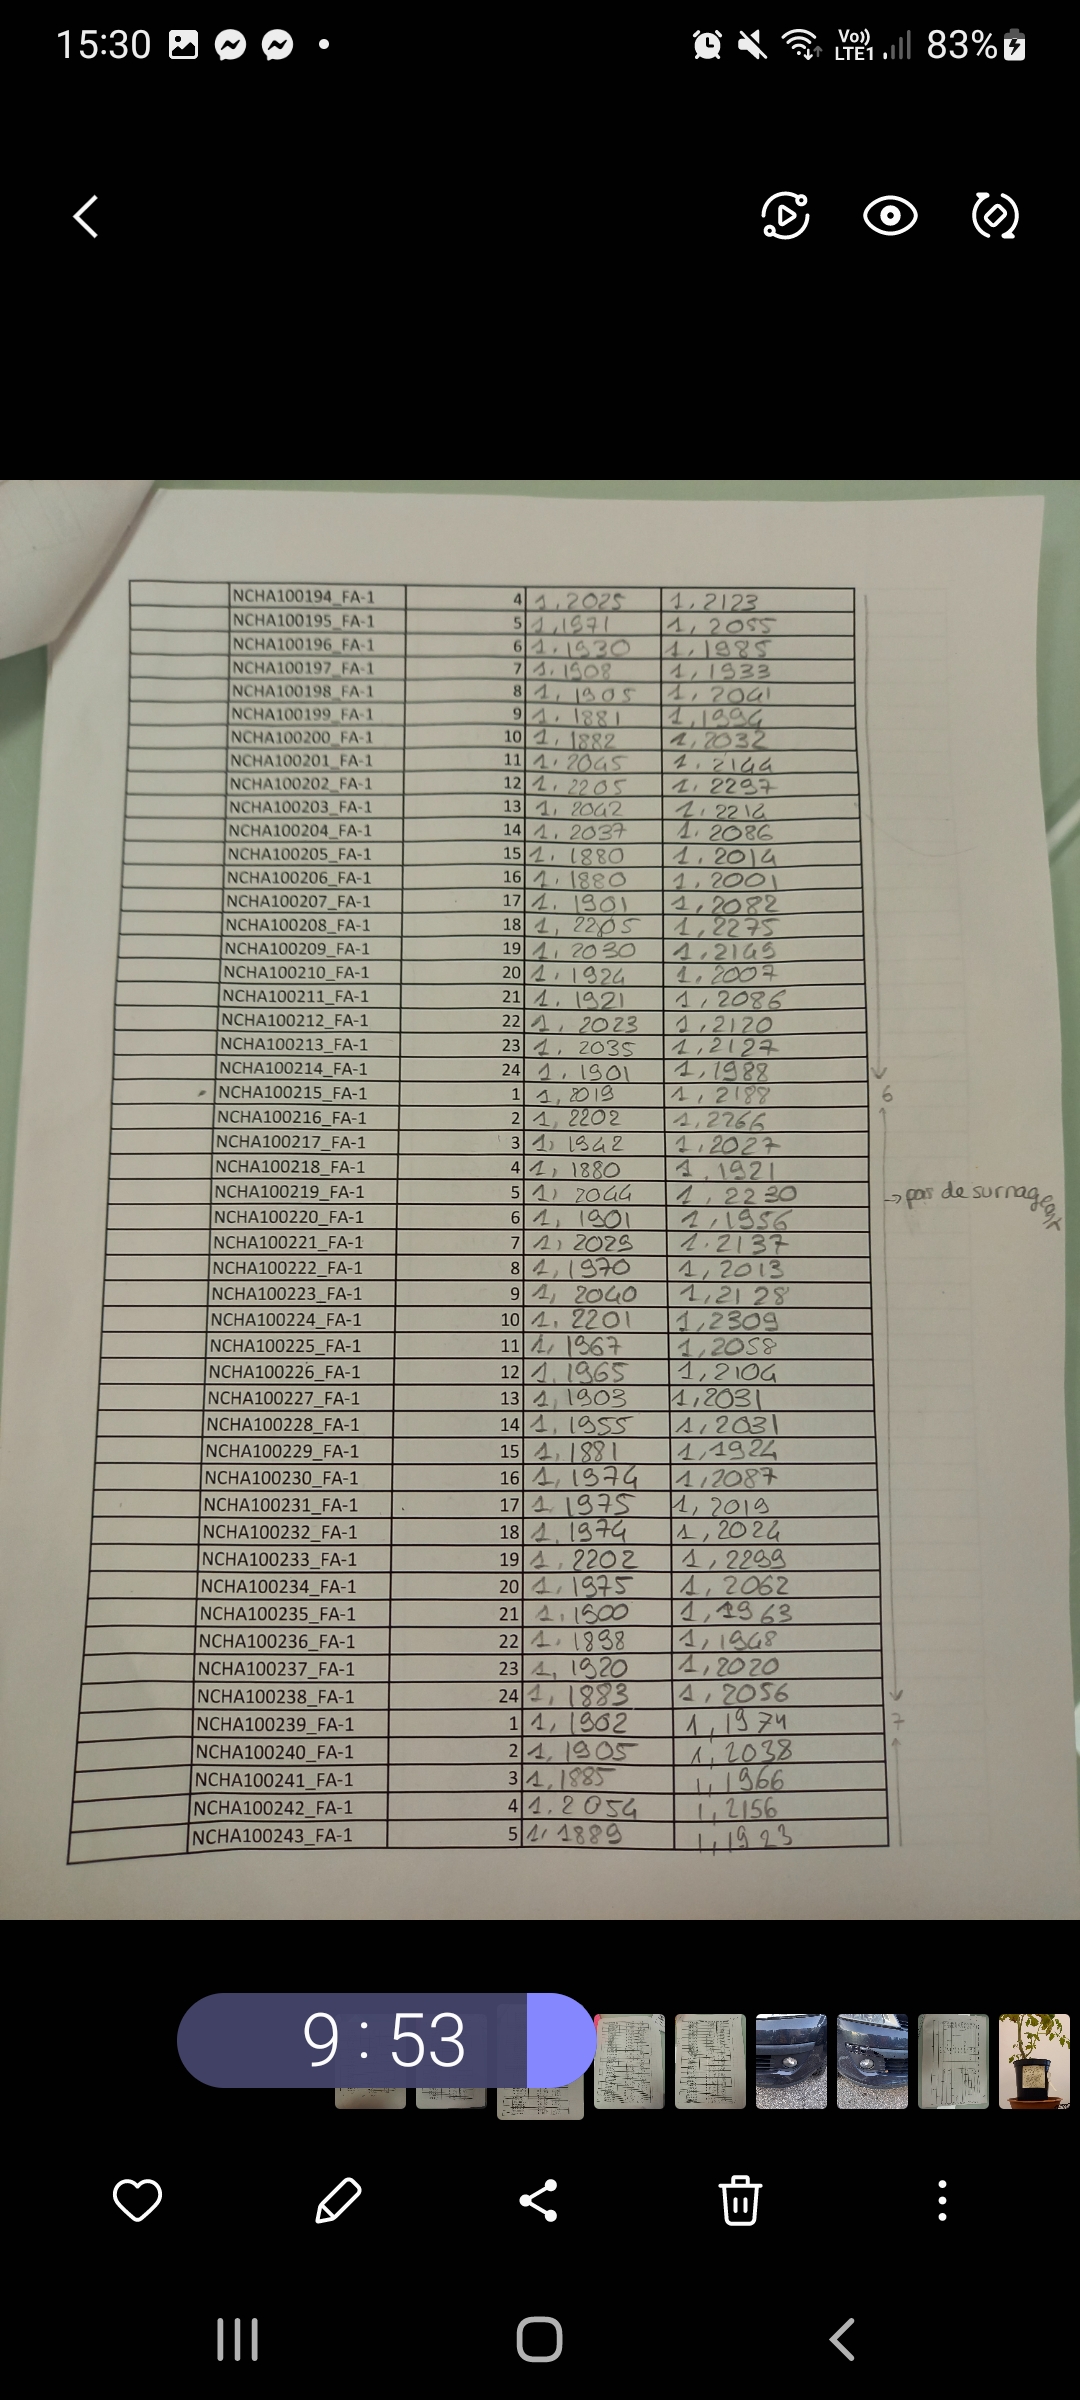 15:30
Vo)) LTE1 83%
NCHA100194_FA-1 4 1,2025 1,2123
NCHA100195_FA-1 5 1,1971 1,2055
NCHA100196_FA-1 6 1,1930 1,1985
NCHA100197_FA-1 7 1,1908 1,1933
NCHA100198_FA-1 8 1,1905 1,2041
NCHA100199_FA-1 9 1,1881 1,1994
NCHA100200_FA-1 10 1,1882 1,2032
NCHA100201_FA-1 11 1,2045 1,2144
NCHA100202_FA-1 12 1,2205 1,2297
NCHA100203_FA-1 13 1,2042 1,2214
NCHA100204_FA-1 14 1,2037 1,2086
NCHA100205_FA-1 15 1,1880 1,2014
NCHA100206_FA-1 16 1,1880 1,2001
NCHA100207_FA-1 17 1,1901 1,2082
NCHA100208_FA-1 18 1,2205 1,2275
NCHA100209_FA-1 19 1,2030 1,2149
NCHA100210_FA-1 20 1,1924 1,2007
NCHA100211_FA-1 21 1,1921 1,2086
NCHA100212_FA-1 22 1,2023 1,2120
NCHA100213_FA-1 23 1,2035 1,2127
NCHA100214_FA-1 24 1,1901 1,1988
NCHA100215_FA-1 1 1,2019 1,2188 6
NCHA100216_FA-1 2 1,2202 1,2266
NCHA100217_FA-1 3 1,1942 1,2027
NCHA100218_FA-1 4 1,1880 1,1921
NCHA100219_FA-1 5 1,2044 1,2230 → pas de surnageant
NCHA100220_FA-1 6 1,1901 1,1956
NCHA100221_FA-1 7 1,2029 1,2137
NCHA100222_FA-1 8 1,1970 1,2013
NCHA100223_FA-1 9 1,2040 1,2128
NCHA100224_FA-1 10 1,2201 1,2309
NCHA100225_FA-1 11 1,1967 1,2058
NCHA100226_FA-1 12 1,1965 1,2104
NCHA100227_FA-1 13 1,1903 1,2031
NCHA100228_FA-1 14 1,1955 1,2031
NCHA100229_FA-1 15 1,1881 1,1924
NCHA100230_FA-1 16 1,1974 1,2087
NCHA100231_FA-1 17 1,1975 1,2019
NCHA100232_FA-1 18 1,1974 1,2024
NCHA100233_FA-1 19 1,2202 1,2299
NCHA100234_FA-1 20 1,1975 1,2062
NCHA100235_FA-1 21 1,1900 1,1963
NCHA100236_FA-1 22 1,1898 1,1948
NCHA100237_FA-1 23 1,1920 1,2020
NCHA100238_FA-1 24 1,1883 1,2056
NCHA100239_FA-1 1 1,1902 1,1974 7
NCHA100240_FA-1 2 1,1905 1,2038
NCHA100241_FA-1 3 1,1885 1,1966
NCHA100242_FA-1 4 1,2054 1,2156
NCHA100243_FA-1 5 1,1889 1,1923
9:53